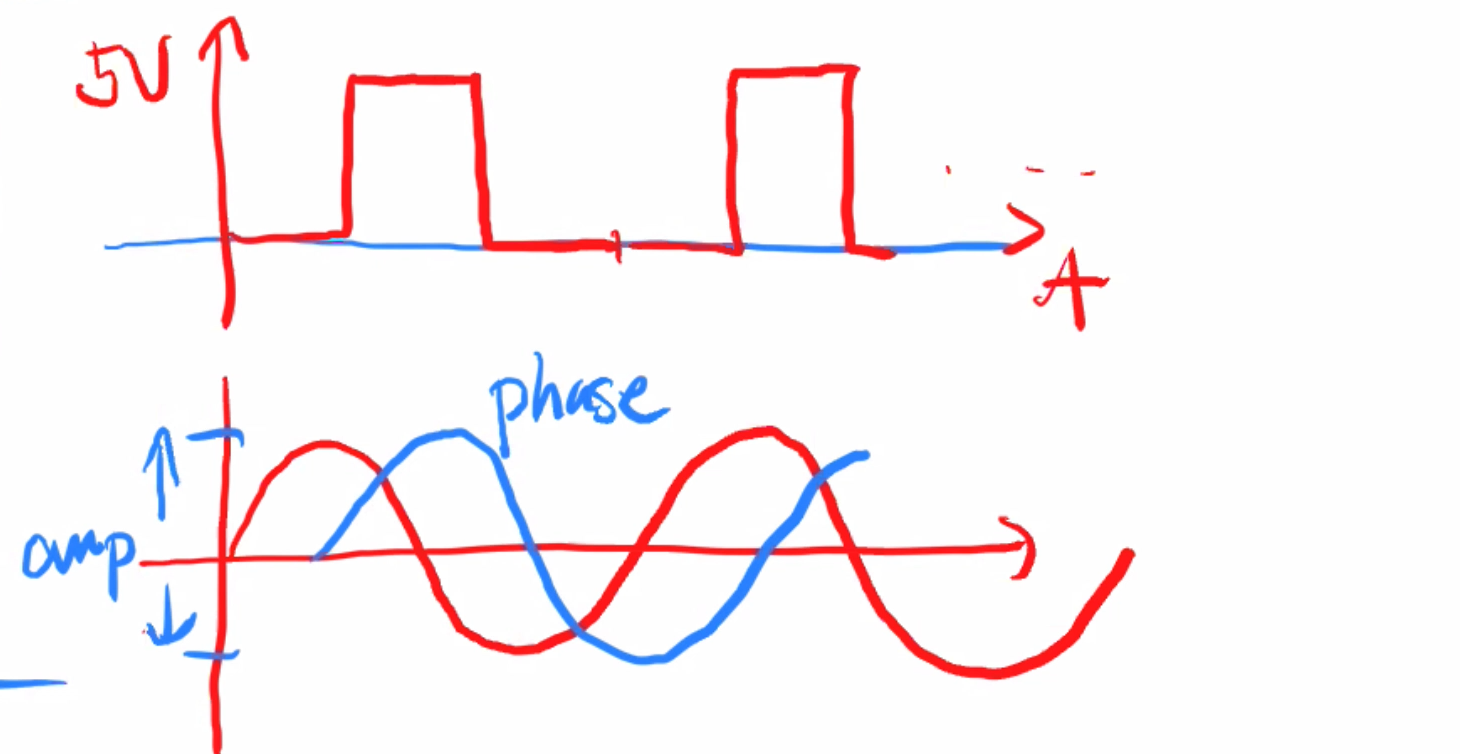 5V
A
phase
amp